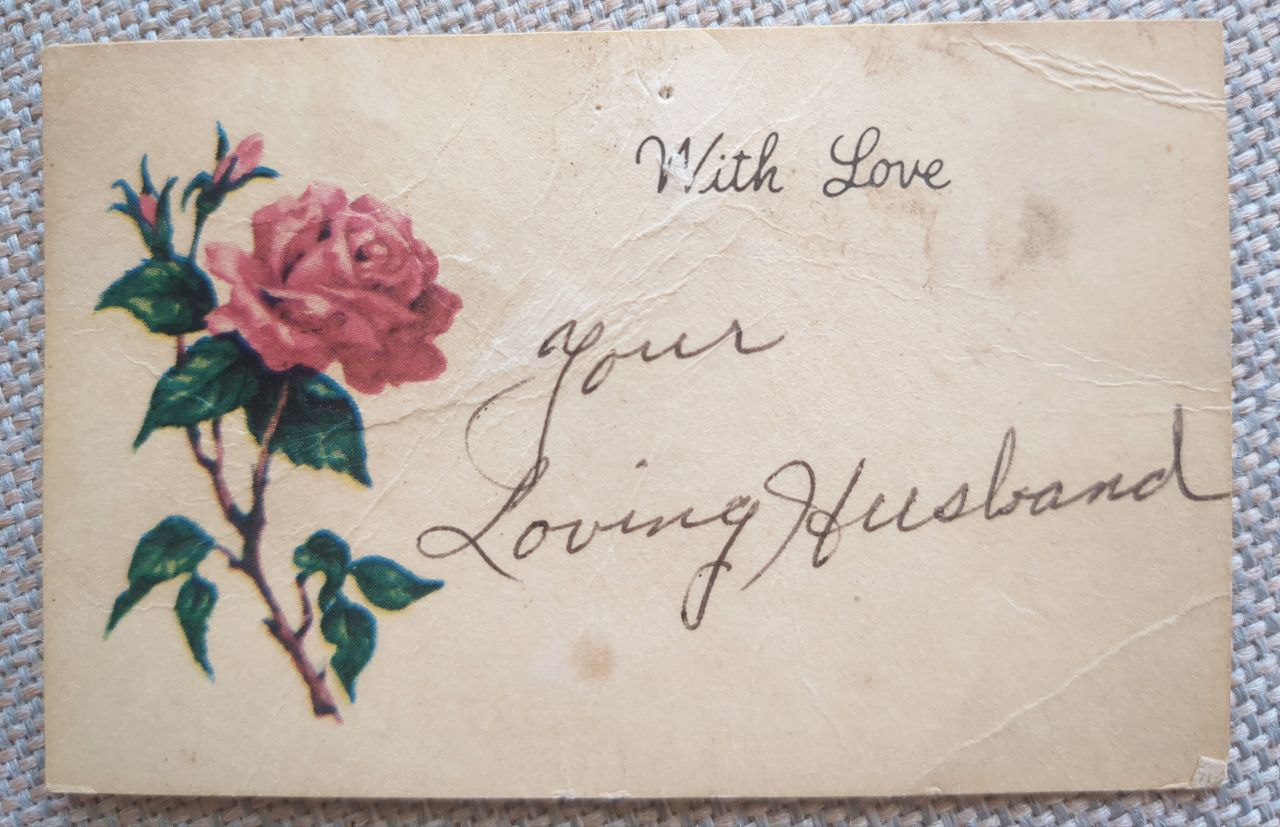 With Love
Your
Loving Husband